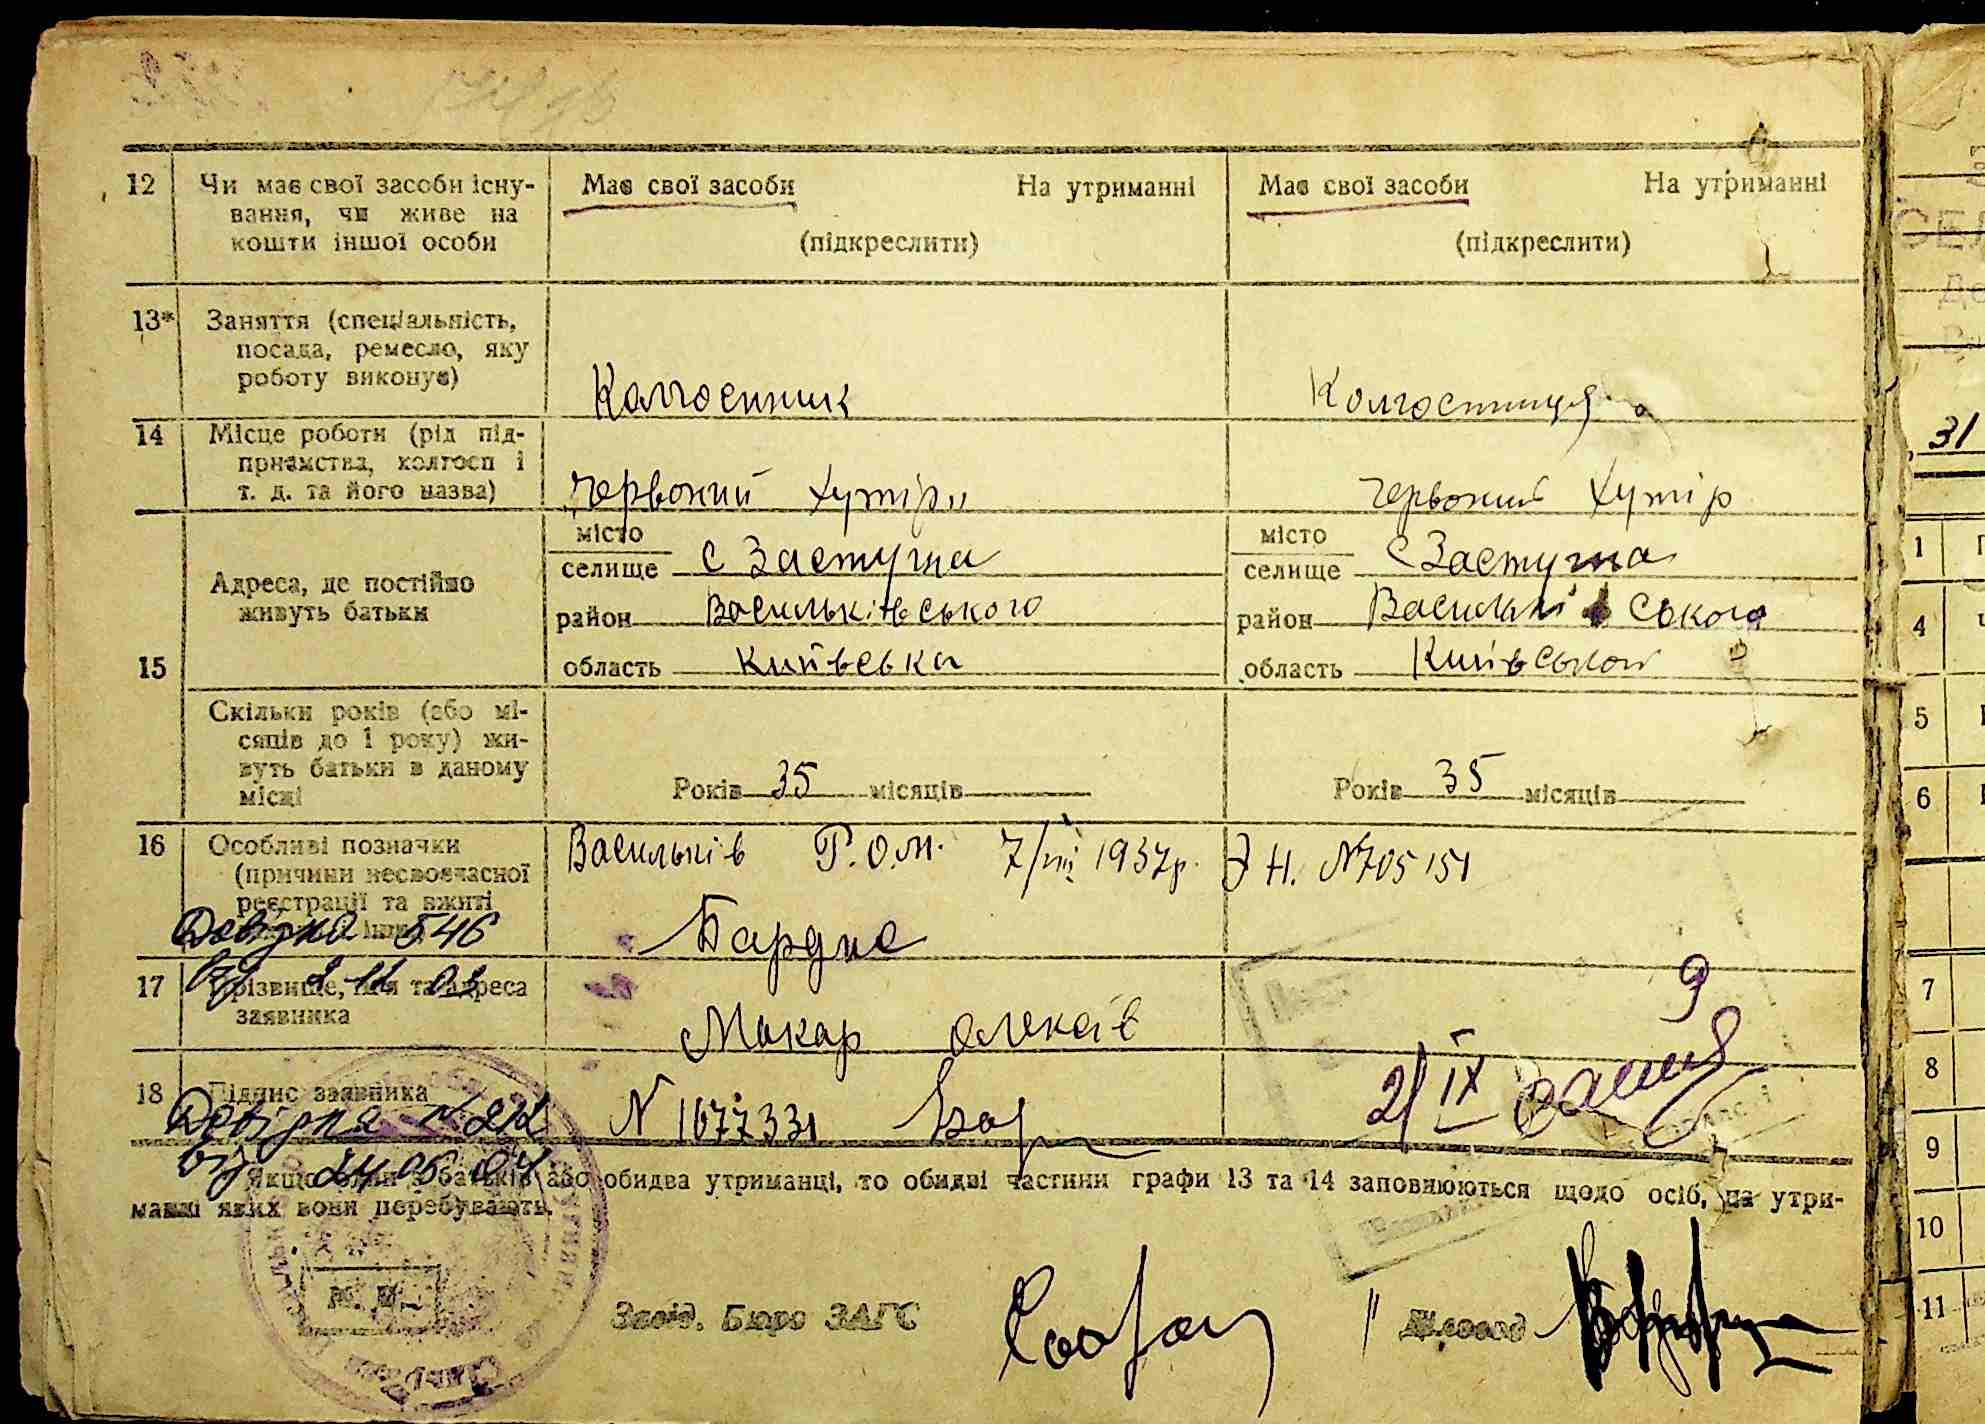 12 Чи має свої засоби існу-
вання, чи живе на
кошти іншої особи
Має свої засоби На утриманні
(підкреслити)
Має свої засоби На утриманні
(підкреслити)
13* Заняття (спеціальність,
посада, ремесло, яку
роботу виконує)
Колгоспник
Колгоспниця
14 Місце роботи (рід під-
приємства, колгосп і
т. д. та його назва)
Червоний Хутір"
Червоний Хутір
15 Адреса, де постійно
живуть батьки
місто
селище с Застугна
район Васильківського
область Київська
місто
селище с Застугна
район Васильківського
область Київської
Скільки років (або мі-
сяців до 1 року) жи-
вуть батьки в даному
місці
Років 35 місяців
Років 35 місяців
16 Особливі позначки
(причини несвоєчасної
реєстрації та вжиті
Довідка 546
Васильків Р.О.М. 7/VIII 1937р. Э Н. №705151
Бардис
17 Прізвище, ім'я та адреса
заявника
Макар Олексів
9
18 Підпис заявника
Довідка N
N 1677331
2/IX
від 24 05 04
Якщо один з батьків або обидва утриманці, то обидві частини графи 13 та 14 заповнюються щодо осіб, на утри-
манні яких вони перебувають.
М. П.
Завід. Бюро ЗАГС
Діловод
31
1
4
5
6
7
8
9
10
11